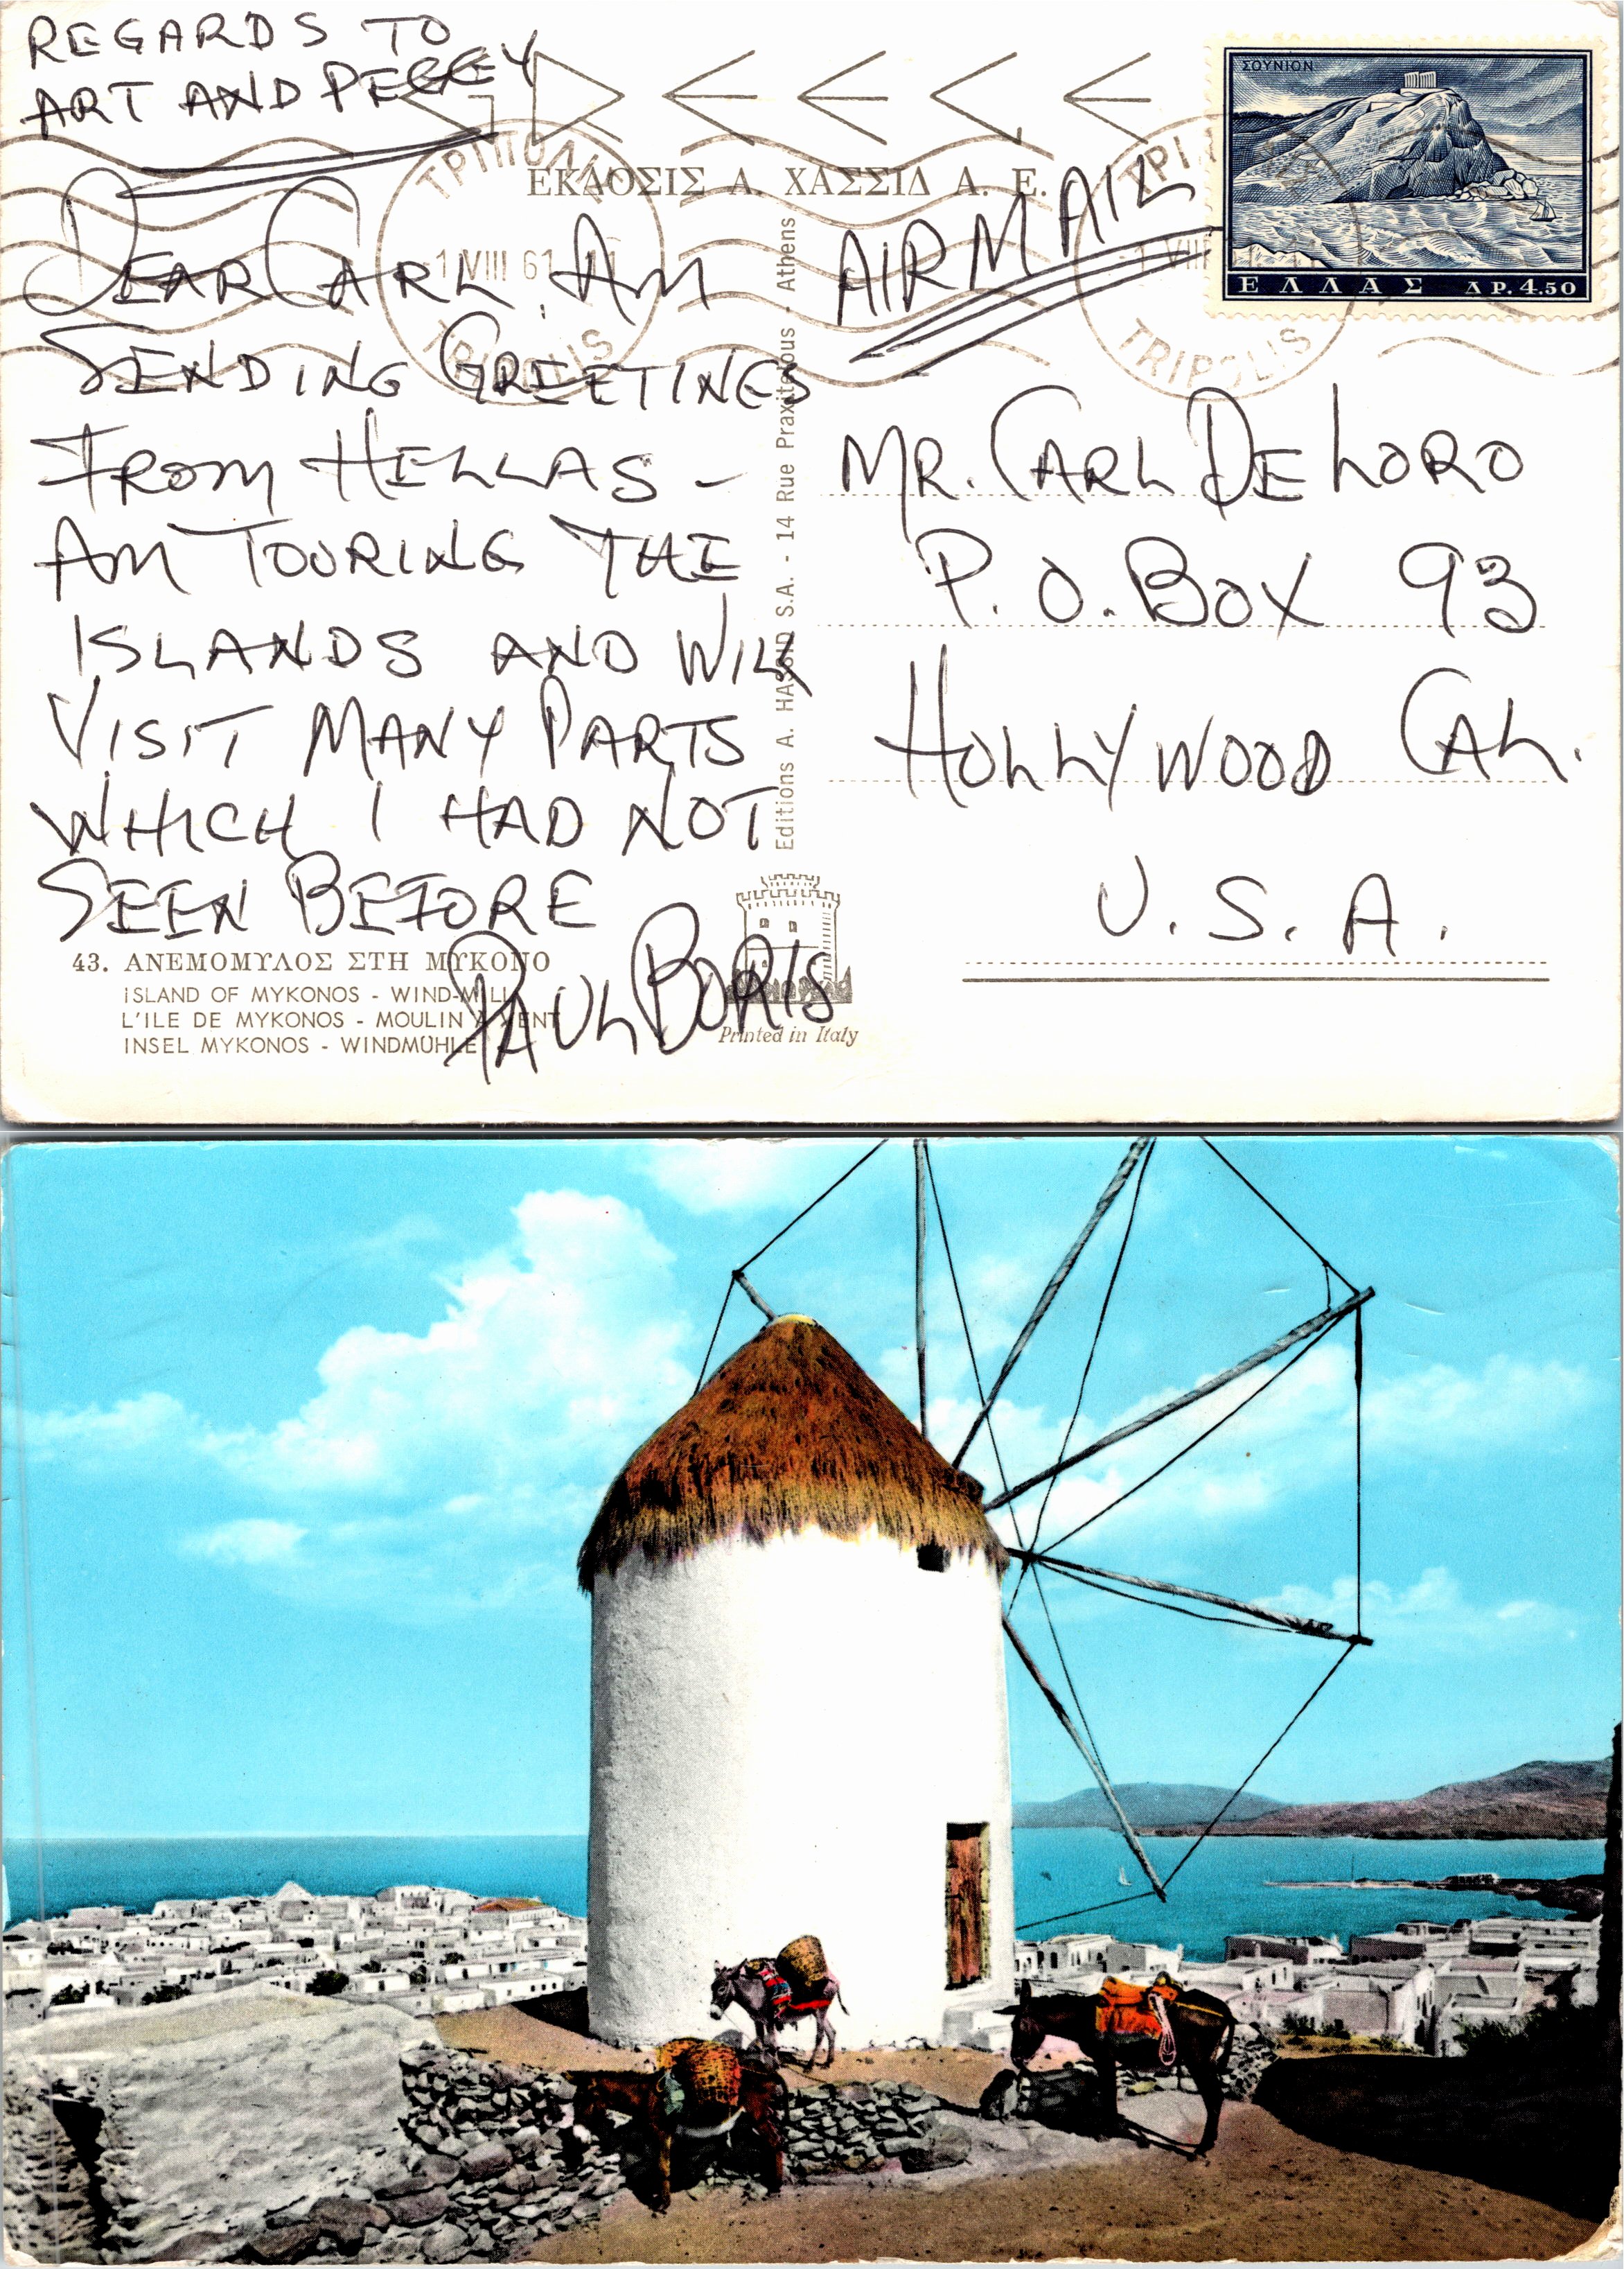 REGARDS TO
ART AND PEGGY
DEAR CARL. AM
SENDING GREETINGS
FROM HELLAS -
AM TOURING THE
ISLANDS AND WILL
VISIT MANY PARTS
WHICH I HAD NOT
SEEN BEFORE
PAUL BORIS
43. ΑΝΕΜΟΜΥΛΟΣ ΣΤΗ ΜΥΚΟΝΟ
ISLAND OF MYKONOS - WIND-MILL
L'ILE DE MYKONOS - MOULIN A VENT
INSEL MYKONOS - WINDMÜHLE
ΕΚΔΟΣΙΣ Α. ΧΑΣΣΙΔ Α. Ε.
Editions A. HASSID S.A. - 14 Rue Praxitelous - Athens
Printed in Italy
ΤΡΙΠΟΛΙΣ
-1 VIII 61
TRIPOLIS
AIRMAIL
-1 VIII
TRIPOLIS
ΣΟΥΝΙΟΝ
ΕΛΛΑΣ ΔΡ. 4.50
MR. CARL DELORO
P. O. BOX 93
HOLLYWOOD CAL.
U. S. A.